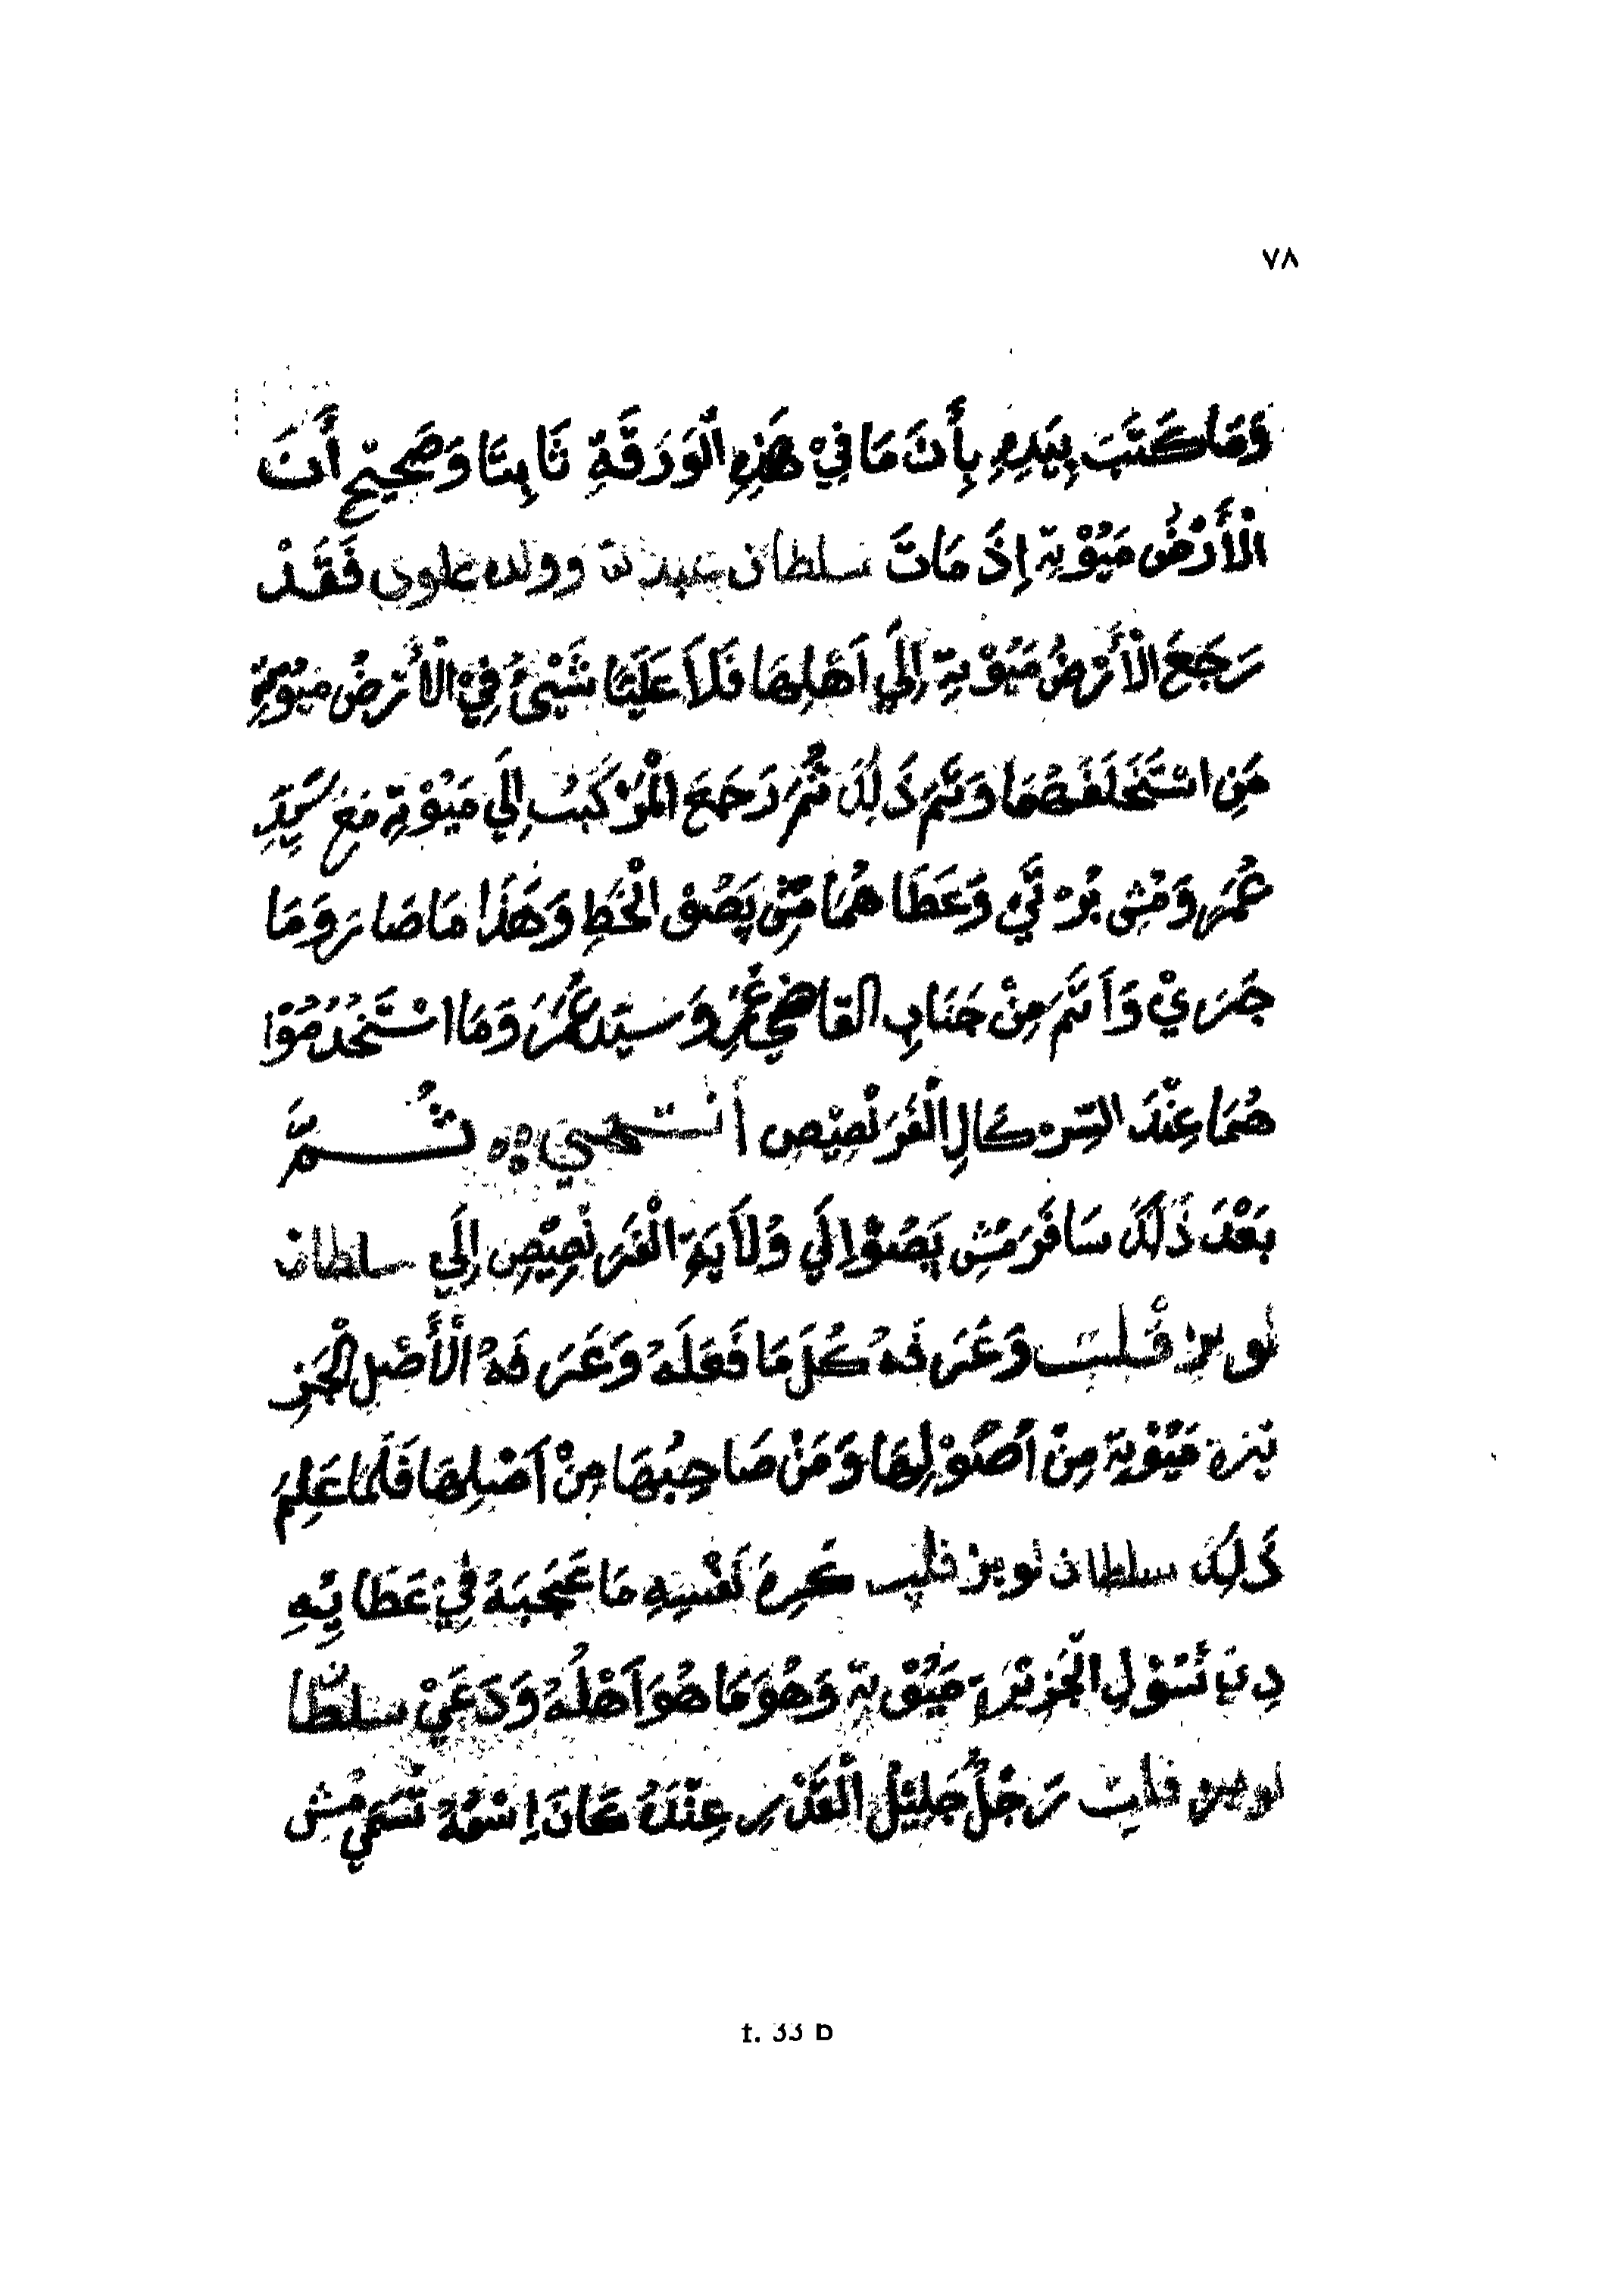 ٧٨
وَمَا كَتَبَ بِيَدِهِ بِأَنَ مَا فِيْ هَذِهِ الْوَرَقَةِ ثَابِتًا وَصَحِيْح أَنَ
الْأَرْضُ مَيُوْتِة إِذَ مَاتَ سلطان عبدلة وولده علوى فَقَدْ
رَجَعَ الْأَرْضُ مَيُوْتِةِ إِلَي اَهْلِهَا فَلاَ عَلَيْنَا شَيْئُ فِيْ الْأَرْضُ مَيُوْتِةِ
مَنِ اسْتَخْلَفَهُمَا وَتَمَ ذَلِكَ ثُمَ رَجَعَ الْمَرْكَبُ اِلَي مَيُوْتِة مَعَ سَيِّدِ
عُمَرَ وَمُشِ بُرْتَيْ وَعَطَا هُمَا مُشِ پَصُوْ الْخَطِ وَهَذَا مَا صَارَ وَمَا
جَرَيْ وَاَتَمَ مِنْ جَنَابِ القاضِي عُمَرِ وَسَيِّد عُمَرَ وَمَا اسْتَخْدُمُوْا
هُمَا عِنْدَ السِّرْكَالِ الْفَرَنْصِيْصِ أنتهي ثُمَّ
بَعْدَ ذَلِكَ سَافَرَ مُشِ پَصُوْ اِلَي وُلاَيَةِ الْفَرَنْصِيْصِ اِلَي سلطان
لويز فلب وَعَرَفَهُ كُلَ مَا فَعَلَهُ وَعَرَفَهُ الْأَصْلِ الْجَزِ
يْرَة مَيُوْتِة مِنْ اُصُوْلِهَا وَمَنْ صَاحِبُهَا مِنْ اَصْلِهَا فَلَمَا عَلِمَ
ذَلِكَ سلطان لويز فلپ كَرِهَ نَفْسِهِ مَا عَجَبَهُ فِيْ عَطَايِهِ
الْجَزِيْرَة مَيُوْتِة وَهُوَ مَا هُوَ اَهْلُهُ وَدَعَيْ سلطان
لويز فلپ رَجُلٌ جَلِيْلُ الْقَدْرِ عِنْدَهُ كَانَ اِسْمُهُ تُسَمَي مُشِ
f. 33 b